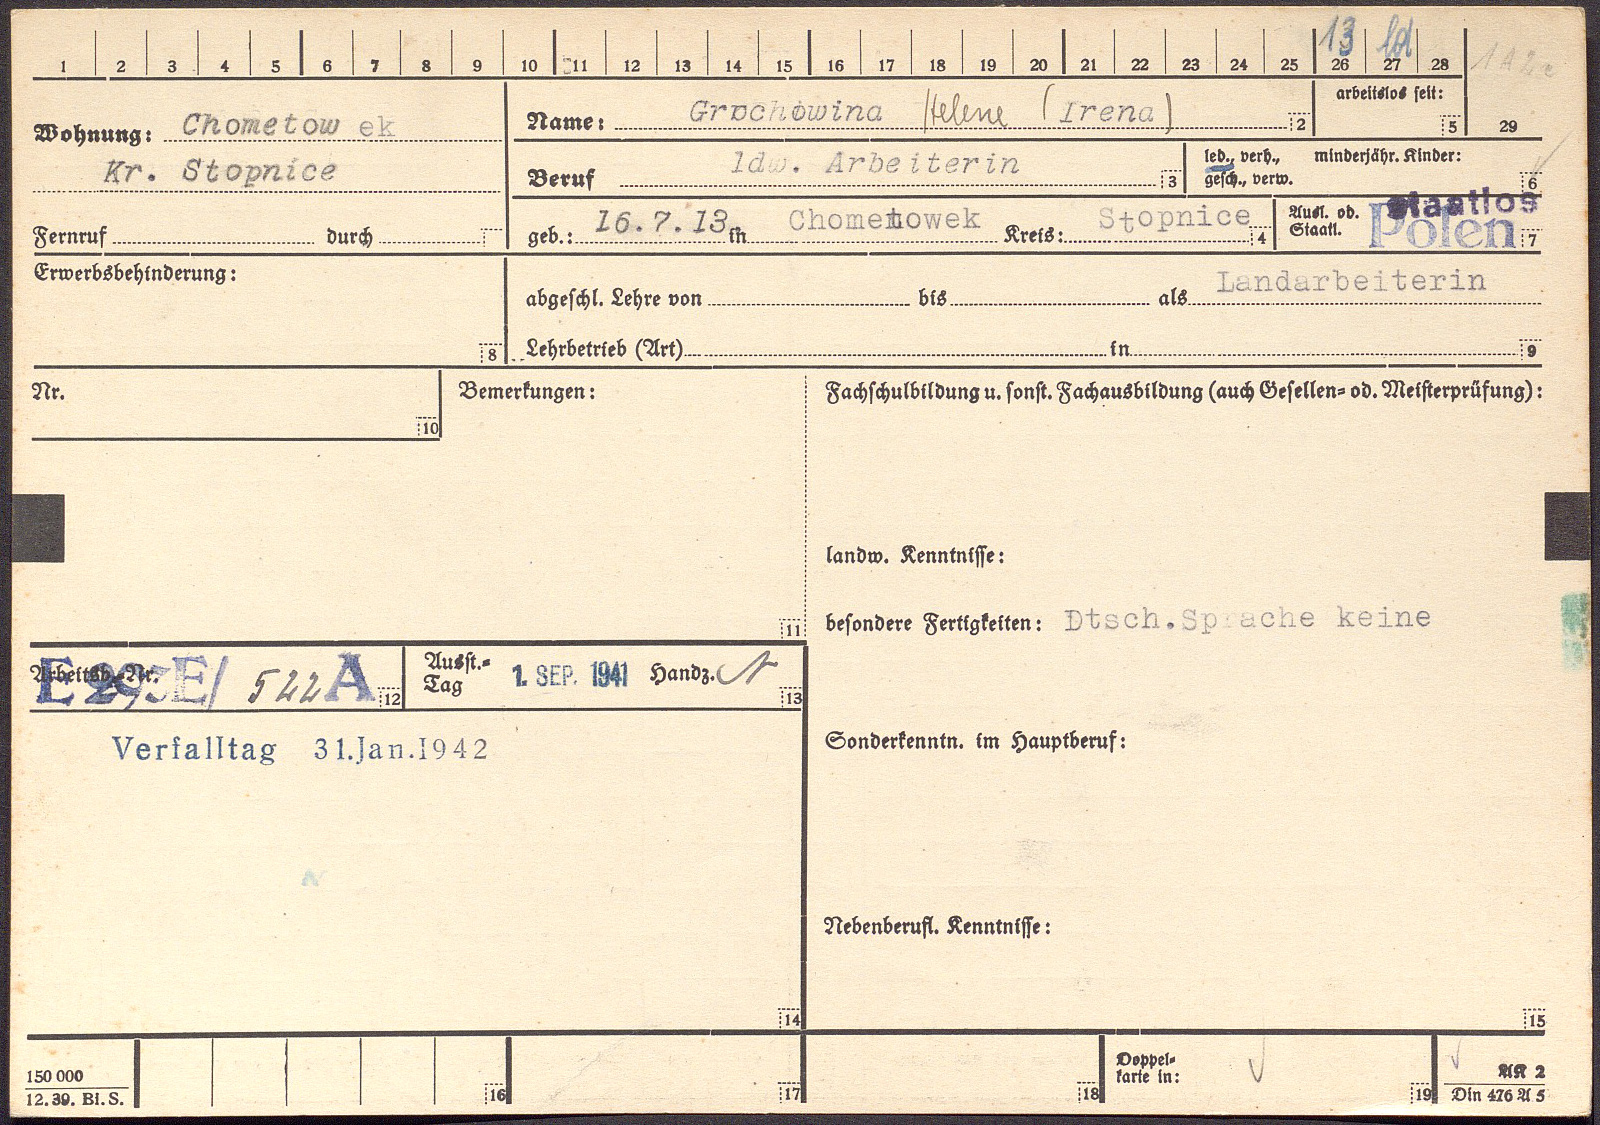 13 ld
1 2 3 4 5 6 7 8 9 10 11 12 13 14 15 16 17 18 19 20 21 22 23 24 25 26 27 28
1 A 2
Wohnung: Chometow ek
Kr. Stopnice
Fernruf durch
Name: Grochowina Helene (Irena) 2
arbeitslos seit: 5
29
Beruf ldw. Arbeiterin 3
led., verh., minderjähr. Kinder:
gesch., verw. 6
geb.: 16.7.13 in Chometowek Kreis: Stopnice 4
Ausl. od. Staatl. staatlos Polen 7
Erwerbsbehinderung: 8
abgeschl. Lehre von bis als Landarbeiterin
Lehrbetrieb (Art) in 9
Nr. 10
Bemerkungen: 11
Fachschulbildung u. sonst. Fachausbildung (auch Gesellen= od. Meisterprüfung):
landw. Kenntnisse:
besondere Fertigkeiten: Dtsch.Sprache keine
Arbeitsb.=Nr. E 293E/ 522 A 12
Ausst.=
Tag 1. SEP. 1941 Handz. 13
Verfalltag 31.Jan.1942
Sonderkenntn. im Hauptberuf:
Nebenberufl. Kenntnisse:
14 15
150 000
12. 39. Bl. S.
16 17 18
Doppel=
karte in: 19
AK 2
Din 476 A 5